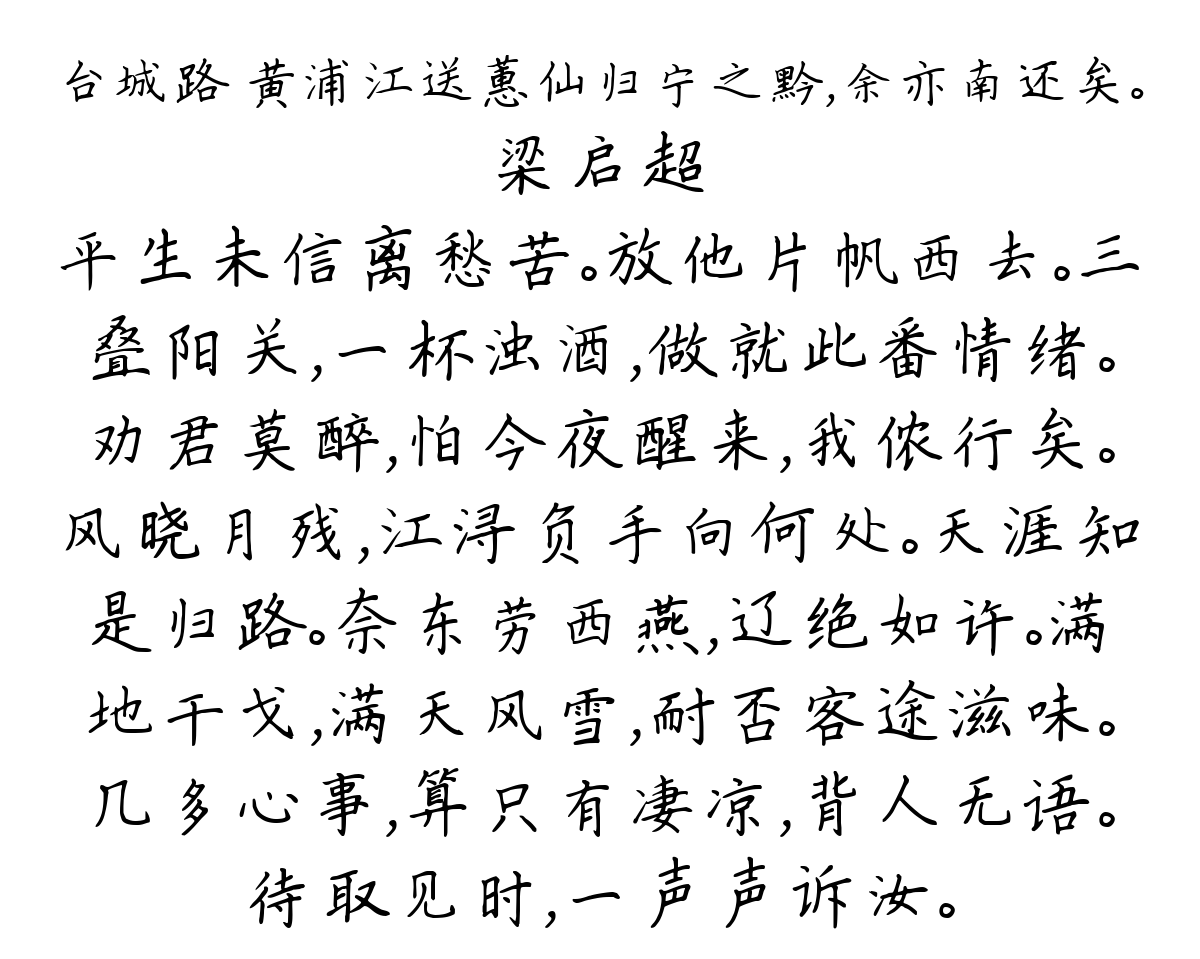 台城路 黄浦江送蕙仙归宁之黔,余亦南还矣。
梁启超
平生未信离愁苦。放他片帆西去。三
叠阳关,一杯浊酒,做就此番情绪。
劝君莫醉,怕今夜醒来,我侬行矣。
风晓月残,江浔负手向何处。天涯知
是归路。奈东劳西燕,辽绝如许。满
地干戈,满天风雪,耐否客途滋味。
几多心事,算只有凄凉,背人无语。
待取见时,一声声诉汝。